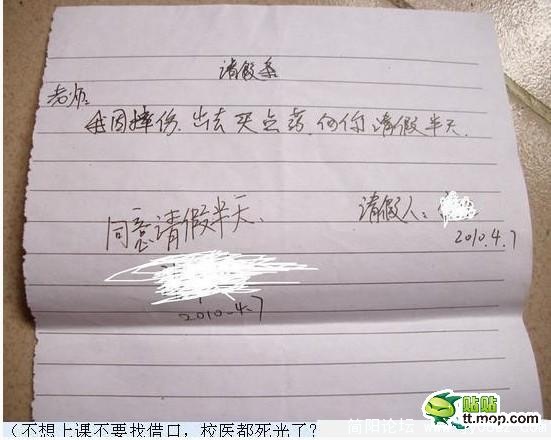 请假条
老师:
我因摔伤.出去买点药.向你请假半天.
同意请假半天.
请假人:
2010.4.7
2010.4.7
简阳论坛
贴贴
tt.mop.com
(不想上课不要找借口，校医都死光了？